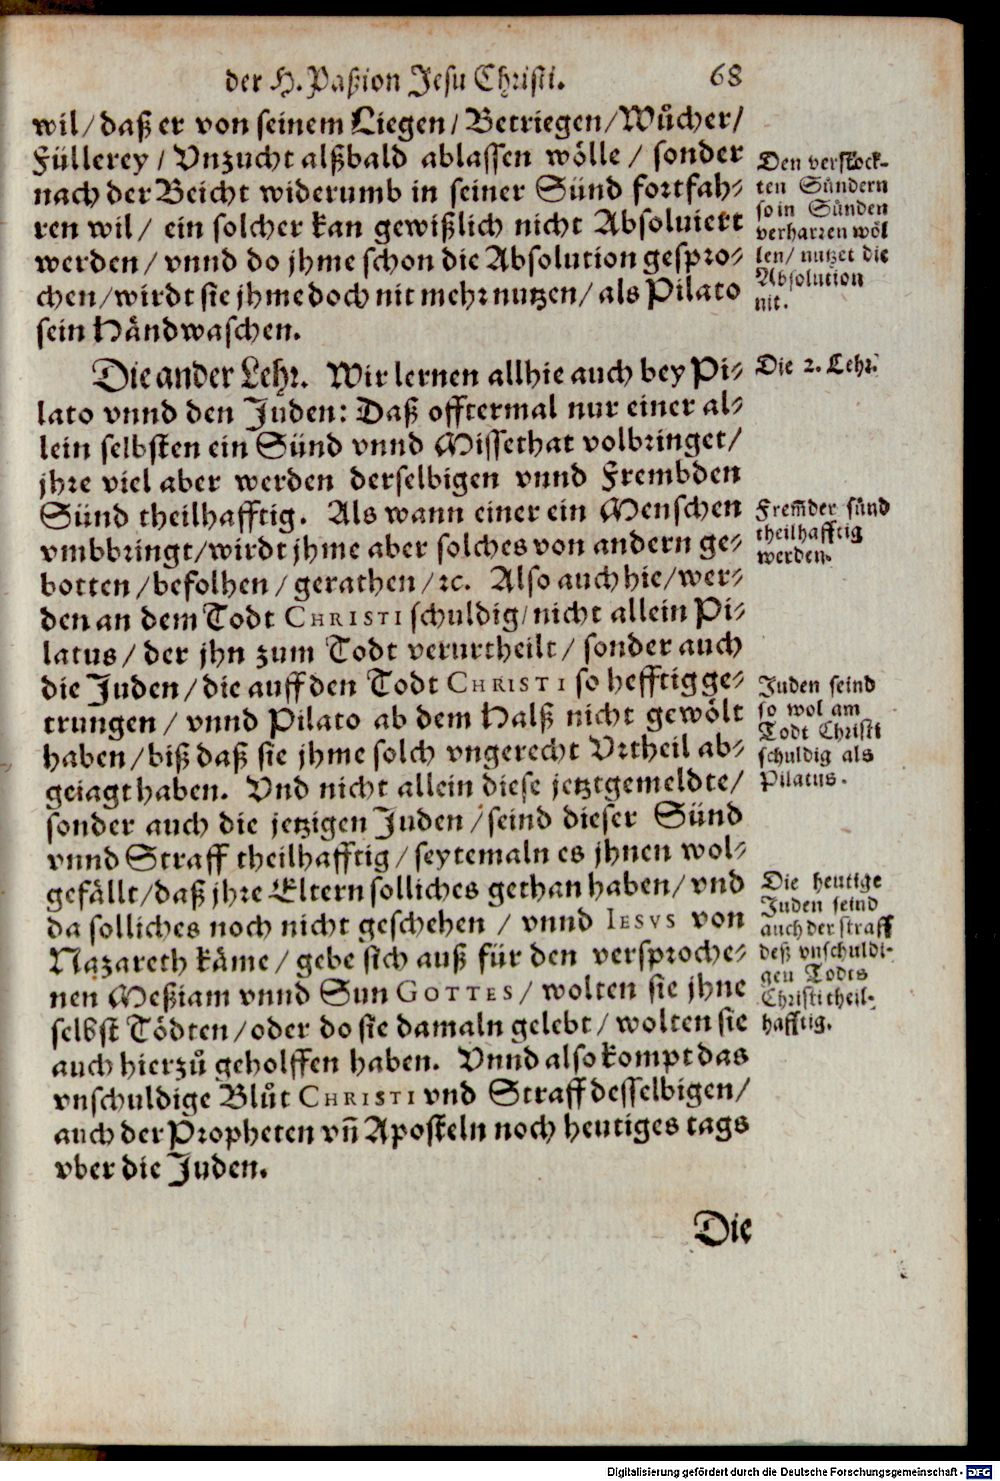 der H. Paßion Jesu Christi. 68
wil / daß er von seinem Liegen / Betriegen / Wůcher /
Füllerey / Vnzucht alßbald ablassen wölle / sonder
nach der Beicht widerumb in seiner Sünd fortfah-
ren wil / ein solcher kan gewißlich nicht Absoluiert
werden / vnnd do jhme schon die Absolution gespro-
chen / wirdt sie jhme doch nit mehr nutzen / als Pilato
sein Händwaschen.
Den verstock-
ten Sündern
so in Sünden
verharren wöl
len / nutzet die
Absolution
nit.
Die ander Lehr. Wir lernen allhie auch bey Pi-
lato vnnd den Juden: Daß offtermal nur einer al-
lein selbsten ein Sünd vnnd Missethat volbringet /
jhre viel aber werden derselbigen vnnd Frembden
Sünd theilhafftig. Als wann einer ein Menschen
vmbbringt / wirdt jhme aber solches von andern ge-
botten / befolhen / gerathen / ꝛc. Also auch hie / wer-
den an dem Todt CHRISTI schuldig / nicht allein Pi-
latus / der jhn zum Todt verurtheilt / sonder auch
die Juden / die auff den Todt CHRISTI so hefftig ge-
trungen / vnnd Pilato ab dem Halß nicht gewölt
haben / biß daß sie jhme solch vngerecht Vrtheil ab-
geiagt haben. Vnd nicht allein diese jetztgemeldte /
sonder auch die jetzigen Juden / seind dieser Sünd
vnnd Straff theilhafftig / seytemaln es jhnen wol-
gefällt / daß jhre Eltern solliches gethan haben / vnd
da solliches noch nicht geschehen / vnnd IESVS von
Nazareth käme / gebe sich auß für den versproche-
nen Meßiam vnnd Sun GOTTES / wolten sie jhne
selbst Tödten / oder do sie damaln gelebt / wolten sie
auch hierzů geholffen haben. Vnnd also kompt das
vnschuldige Blůt CHRISTI vnd Straff desselbigen /
auch der Propheten vñ Aposteln noch heutiges tags
vber die Juden.
Die 2. Lehr.
Frem̃der sünd
theilhafftig
werden.
Juden seind
so wol am
Todt Christi
schuldig als
Pilatus.
Die heutige
Juden seind
auch der straff
deß vnschuldi-
gen Todts
Christi theil-
hafftig.
Die
Digitalisierung gefördert durch die Deutsche Forschungsgemeinschaft - DFG